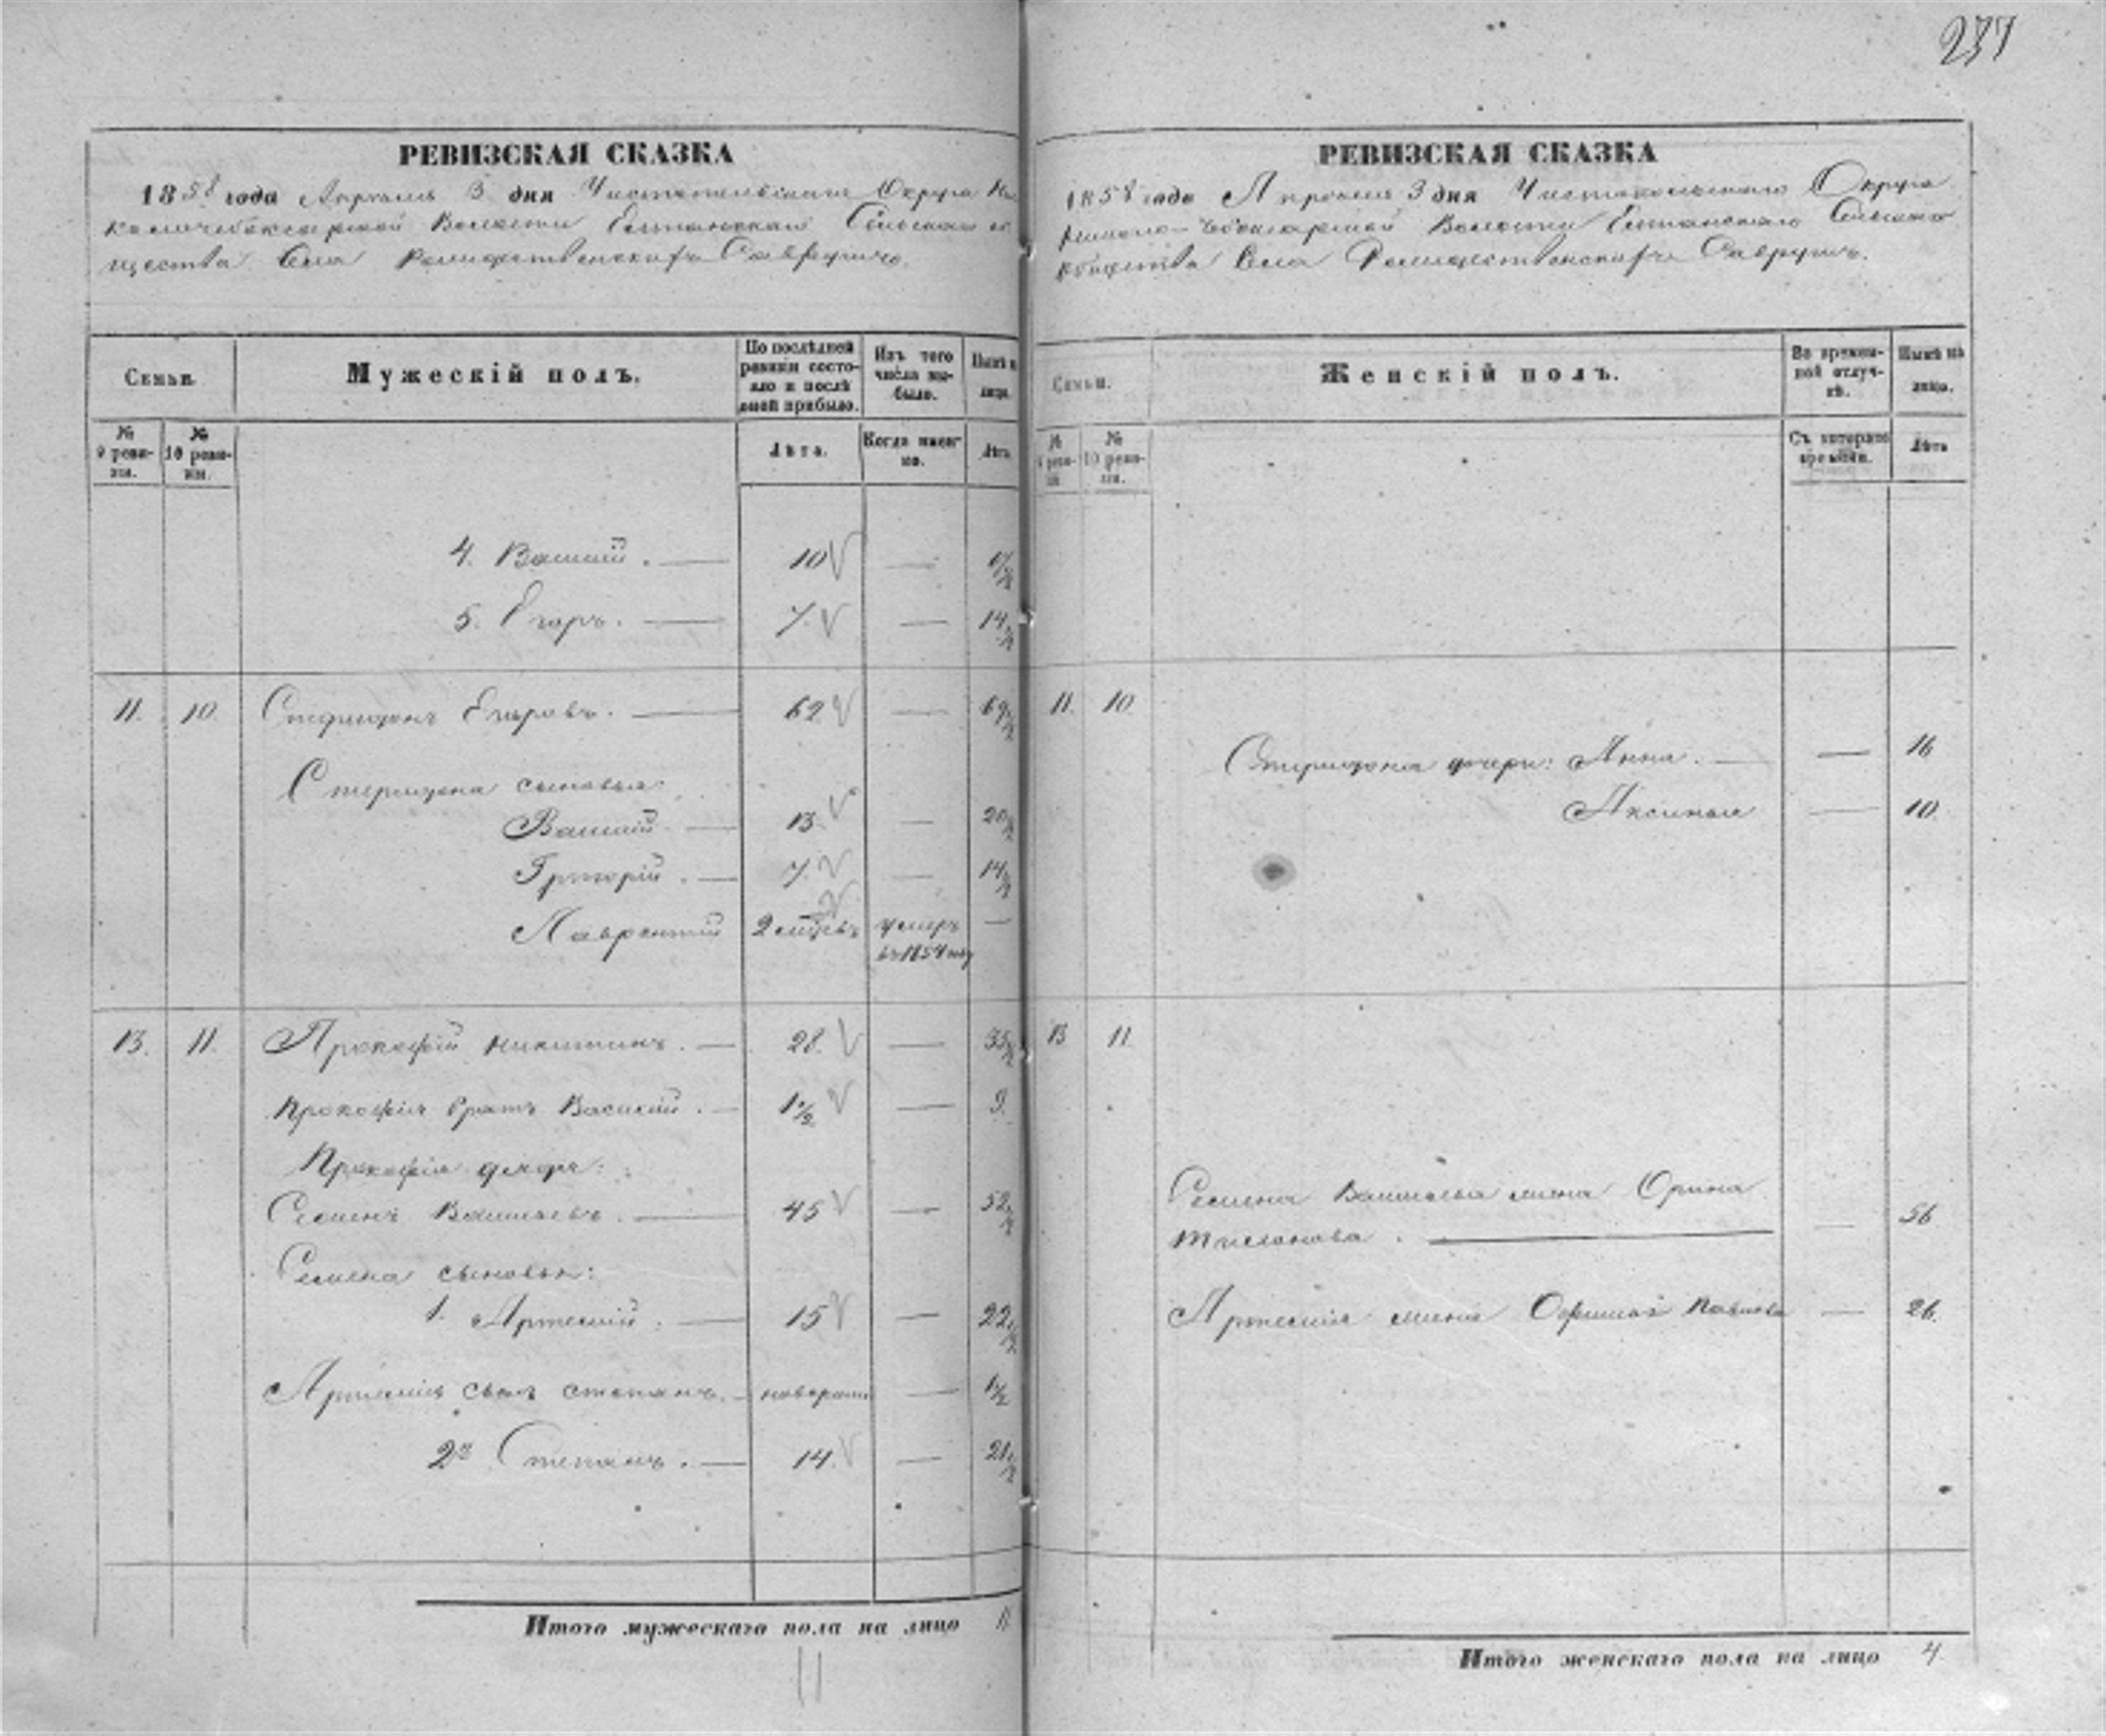 237
РЕВИЗСКАЯ СКАЗКА
1858 года Апреля 3 дня Чистопольскаго Округа
Волости Сельскаго
щества Села Рождественскихъ Саврушъ.
Семьи.
Мужескій полъ.
По послѣдней ревизіи состояло и послѣ оной прибыло.
Изъ того числа выбыло.
Нынѣ на лицо.
№ 9 ревизіи.
№ 10 ревизіи.
Лѣта.
Когда именно.
Лѣта
4. Василій. — 10 — 17 1/2
5. Егоръ. — 7. — 14 1/2
11. 10. Егоровъ. — 62 — 69 1/2
сыновья:
Василій — 13. — 20 1/2
Григорій. — 7. — 14 1/2
Лаврентій 2 умеръ —
въ 1854 году
13. 11. Прокофій Никитинъ. — 28. — 35 1/2
Прокофія братъ Василій. — 1 1/2 — 9.
Прокофія дядя:
Семенъ Васильевъ. — 45 — 52 1/2
Семена сыновья:
1. Артемій. — 15 — 22 1/2
Артемія сынъ Степанъ. — новорож — 1/2
2й Степанъ. — 14. — 21 1/2
Итого мужескаго пола на лицо 11
11
РЕВИЗСКАЯ СКАЗКА
1858 года Апреля 3 дня Чистопольскаго Округа
Волости Сельскаго
общества Села Рождественскихъ Саврушъ.
Семьи.
Женскій полъ.
Во временной отлучкѣ.
Нынѣ на лицо.
№ 9 ревизіи
№ 10 ревизіи.
Съ котораго времени.
Лѣта
11. 10.
дочери: Анна. — — 16
Аксинья — 10.
13 11
Семена Васильева жена Орина
— — 56
Артемія жена Павлова — 26.
Итого женскаго пола на лицо 4